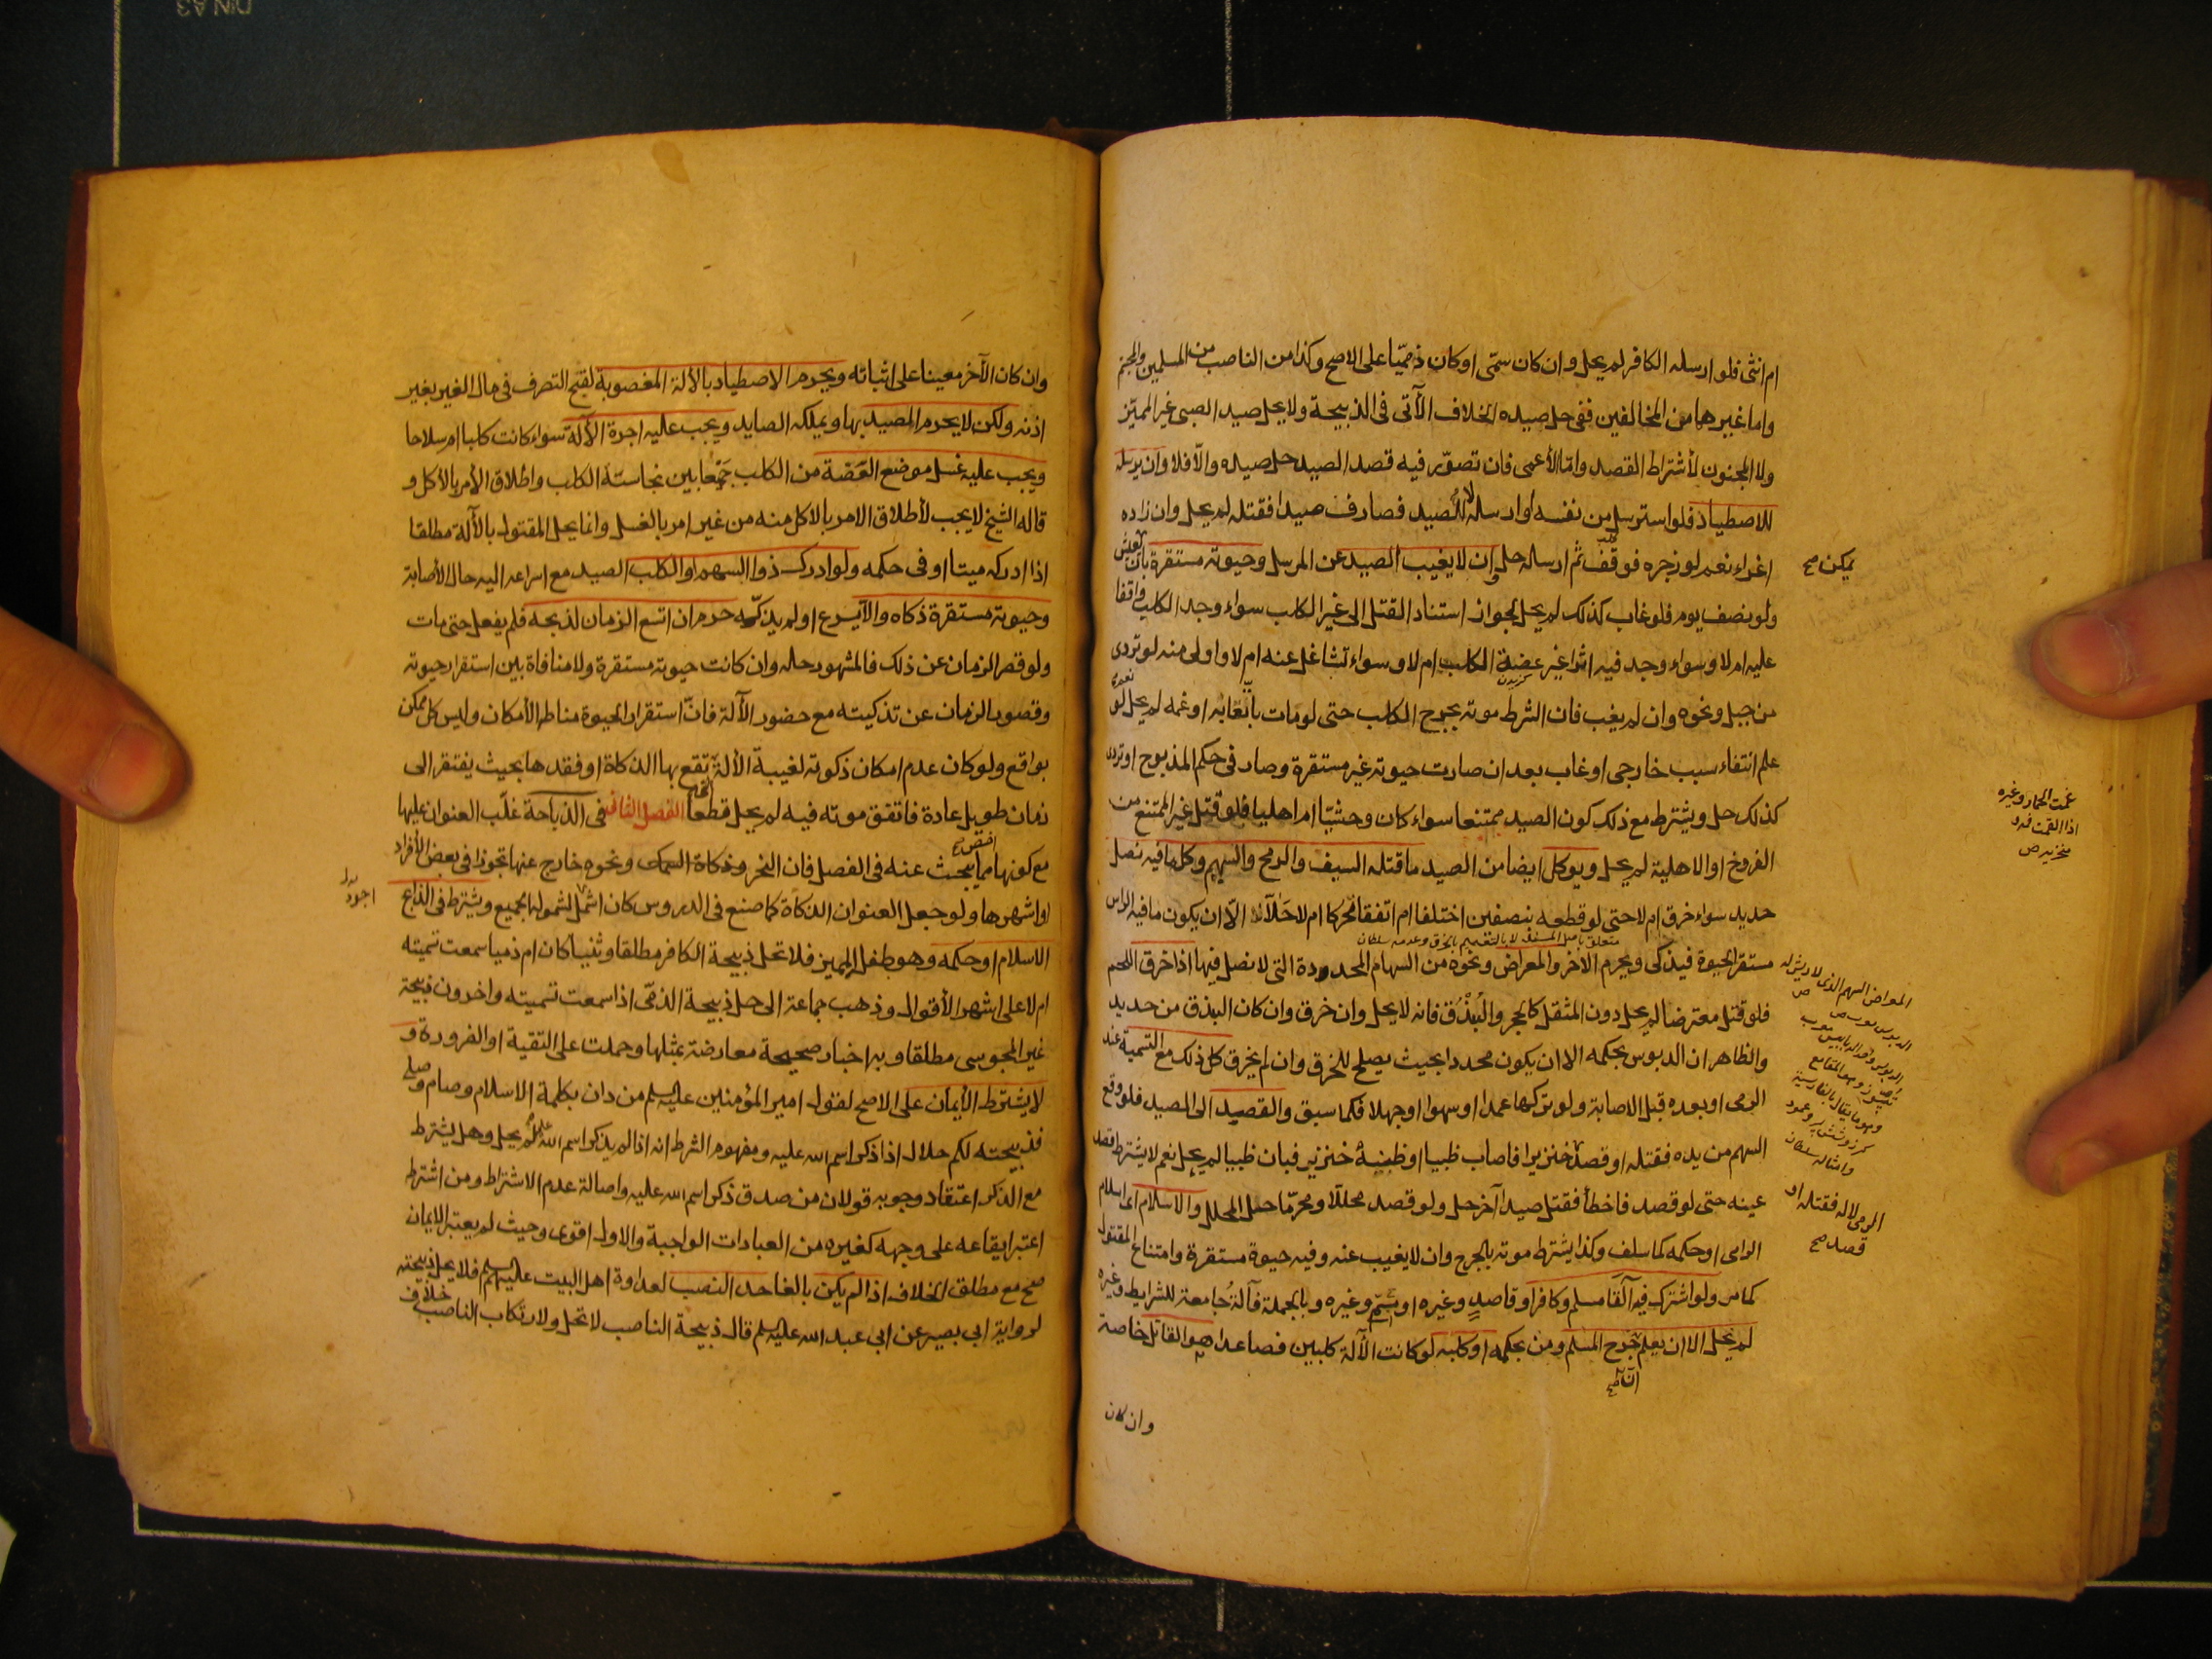 ام انثى فلو ارسله الكافر لم يحل وان كان سمّى او كان ذمّيّا على الاصح وكذا من الناصب من المسلمين والمجسّم
واما غيرهما من المخالفين ففي حل صيده الخلاف الآتي في الذبيحة ولا يحل صيد الصبي غير المميّز
ولا المجنون لأشتراط القصد وامّا الأعمى فان تصوّر فيه قصد الصيد حل صيده والّا فلا وان يرسله
للاصطياد فلو استرسل من نفسه او ارسله لا للصيد فصادف صيدا فقتله لم يحل وان زاده
اغراء نعم لو زجره فوقف ثم ارسله حل وان لا يغيب الصيد عن المرسل وحيوته مستقرة بان يمكن ان يعيش
يمكن صح
ولو نصف يوم فلو غاب كذلك لم يحل لجواز استناد القتل الى غير الكلب سواء وجد الكلب واقفا
عليه ام لا وسواء وجد فيه اثرا غير عضّة الكلب ام لا وسواء تشاغل عنه ام لا واولى منه لو تردى
من جبل ونحوه وان لم يغب فان الشرط موته بجرح الكلب حتى لو مات باتعابه او غمه لم يحل نعم لو
علم انتفاء سبب خارجي او غاب بعد ان صارت حيوته غير مستقرة وصار في حكم المذبوح او تردى
كذلك حل ويشترط مع ذلك كون الصيد ممتنعا سواء كان وحشيّا ام اهليا فلو قتل غير الممتنع من
غمت الحمار وغيره
اذا القمت فمه و
منخريه ص
الفروخ او الاهلية لم يحل ويوكل ايضا من الصيد ما قتله السيف والرمح والسهم وكل ما فيه نصل
حديد سواء خرق ام لا حتى لو قطعه بنصفين اختلفا ام اتفقا تحركا ام لا حَلّا الّا ان يكون ما فيه الراس
مستقر الحيوة فيذكى ويحرم الاخر والمعراض ونحوه من السهام المحددة التي لا نصل فيها اذا خرق اللحم
المعراض السهم الذي لا ريش له
فلو قتل معترضا لم يحل دون المثقل كالحجر والبُنْدُق فانه لا يحل وان خرق وان كان البندق من حديد
والظاهر ان الدبوس بحكمه الا ان يكون محددا بحيث يصلح للخرق وان لم يخرق كل ذلك مع التسمية عند
الرمي او بعده قبل الاصابة ولو تركها عمدا او سهوا او جهلا فكما سبق والقصد الى الصيد فلو وقع
السهم من يده فقتله او قصد خنزيرا فاصاب ظبيا او ظنه خنزيرا فبان ظبيا لم يحل نعم لا يشترط قصد
عينه حتى لو قصد فاخطأ فقتل صيدا آخر حل ولو قصد محللا ومحرّما حل المحلل والاسلام اى اسلام
الرمي لا له فقتله او
قصد صح
الرامى او حكمه كما سلف وكذا يشترط موته بالجرح وان لا يغيب عنه وفيه حيوة مستقرة وامتناع المقتول
كما مر ولو اشترك فيه آلتا مسلم وكافر او قاصد وغيره او مسم وغيره وبالجملة فآلة جامعة للشرايط وغيره
لم يحل الا ان يعلم جرح المسلم ومن بحكمه او كلبه لو كانت الآلة كلبين فصاعدا هو القاتل خاصة
وان كان
وان كان الآخر معينا على اثباته ويحرم الاصطياد بالألة المغصوبة لقبح التصرف في مال الغير بغير
اذنه ولكن لا يحرم المصيد بها ويملكه الصايد ويجب عليه اجرة الآلة سواء كانت كلبا ام سلاحا
ويجب عليه غسل موضع العَضّة من الكلب جَمْعا بين نجاسة الكلب واطلاق الأمر بالأكل و
قال الشيخ لا يجب لأطلاق الامر بالاكل منه من غير امر بالغسل وانما يحل المقتول بالآلة مطلقا
اذا ادركه ميتا او في حكمه ولو ادرك ذو السهم او الكلب الصيد مع اسراعه اليه حال الأصابة
وحيوته مستقرة ذكاه والّا يسرع او لم يذكّه حرم ان اتسع الزمان لذبحه فلم يفعل حتى مات
ولو قصر الزمان عن ذلك فالمشهور حله وان كانت حيوته مستقرة ولا منافاة بين استقرار حيوته
وقصور الزمان عن تذكيته مع حضور الآلة فانّ استقرار الحيوة مناطه الأمكان وليس كل ممكن
بواقع ولو كان عدم امكان ذكوته لغيبة الألة التي تقع بها الذكاة او فقدها بحيث يفتقر الى
زمان طويل عادة فاتفق موته فيه لم يحل قطعا الفصل الثاني في الذباحة غلّب العنوان عليها
مع كونها اخص مما يبحث عنه في الفصل فان النحر وذكاة السمك ونحوه خارج عنها تجوزا في بعض الأفراد
او اشهرها ولو جعل العنوان الذكاة كما صنع في الدروس كان اجود لشموله الجميع ويشترط في الذابح
اجود
الاسلام او حكمه وهو طفله المميز فلا تحل ذبيحة الكافر مطلقا وثنيا كان ام ذميا سمعت تسميته
ام لا على اشهر الأقوال وذهب جماعة الى حل ذبيحة الذمّى اذا سمعت تسميته واخرون ذبيحة
غير المجوسى مطلقا وبه اخبار صحيحة معارضة بمثلها وحملت على التقية او الضرورة و
لا يشترط الأيمان على الاصح لقول امير المؤمنين عليه السلم من دان بكلمة الاسلام وصام وصلى
فذبيحته لكم حلال اذا ذكر اسم الله عليه ومفهوم الشرط انه اذا لم يذكر اسم الله عليه لم يحل وهل يشترط
مع الذكر اعتقاد وجوبه قولان من صدق ذكر اسم الله عليه واصالة عدم الاشتراط ومن اشتراطه
اعتبر ايقاعه على وجهه كغيره من العبادات الواجبة والاول اقوى وحيث لم يعتبر الايمان
صح مع مطلق الخلاف اذا لم يكن بالغا حد النصب لعداوة اهل البيت عليهم السلم فلا يحل ذبيحته
لرواية ابي بصير عن ابي عبد الله عليه السلم قال ذبيحة الناصب لا تحل ولارتكاب الناصب خلاف